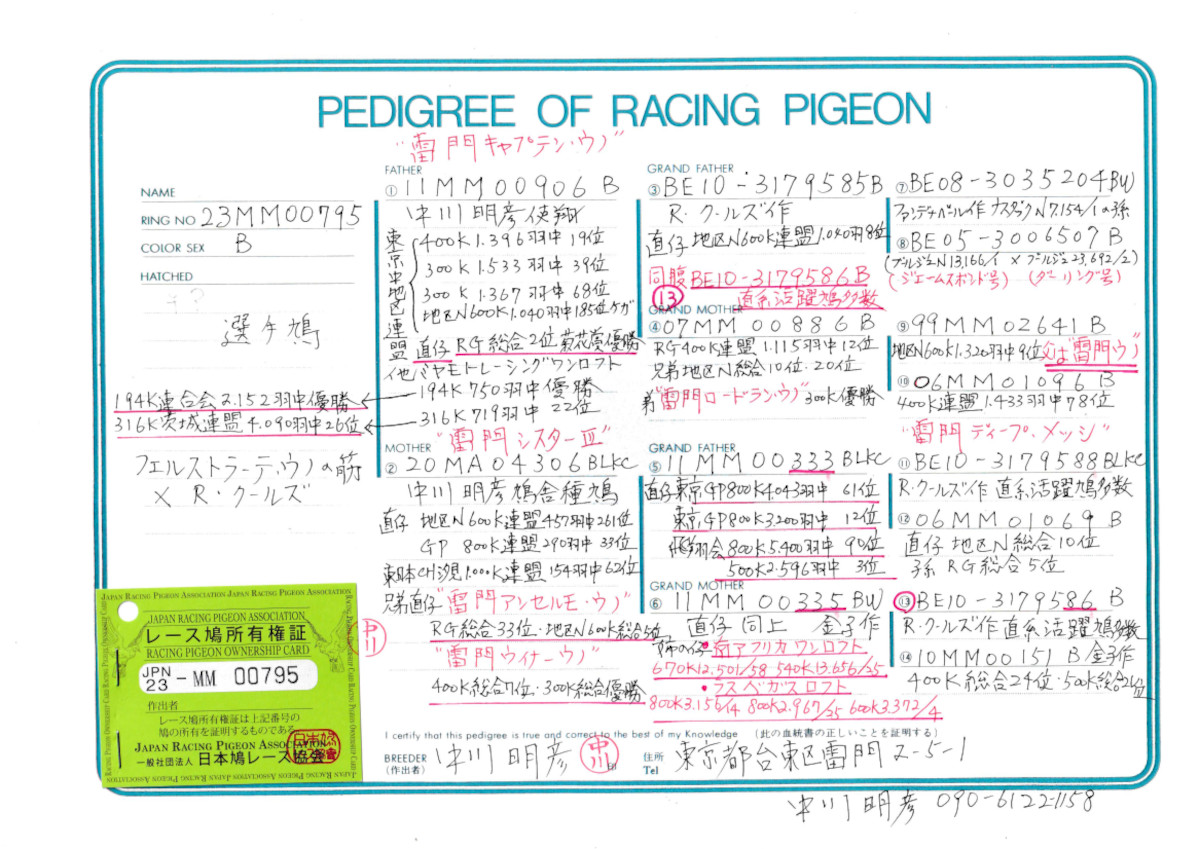 PEDIGREE OF RACING PIGEON
NAME
RING NO 23MM00795
COLOR SEX B
HATCHED
選手鳩
194K連合会2.152羽中優勝
316K茨城連盟4.090羽中26位
フェルストラーテ.ウノの筋
× R・クールズ
"雷門キャプテン・ウノ"
FATHER
① 11MM00906 B
中川明彦使翔
東京中地区連盟
400K1.396羽中19位
300K1.533羽中39位
300K1.367羽中68位
地区N600K1.040羽中185位ケガ
直仔 RG総合2位 菊花賞優勝
他ミヤモトレーシングワンロフト
194K750羽中優勝
316K719羽中22位
"雷門シスターⅢ"
MOTHER
② 20MA04306BLKC
中川明彦鳩舎種鳩
直仔 地区N600K連盟457羽中261位
GP 800K連盟290羽中33位
東日本CH汐見1.000K連盟154羽中62位
兄弟直仔"雷門アンセルモ・ウノ"
RG総合33位・地区N600K総合5位
"雷門ウイナーウノ"
400K総合7位・300K総合優勝
GRAND FATHER
③ BE10-3179585B
R.クールズ作
直仔 地区N600K連盟1.040羽8位
同腹BE10-3179586B
⑬ 直系活躍鳩多数
GRAND MOTHER
④ 07MM00886B
RG400K連盟1.115羽中12位
兄弟地区N総合10位・20位
弟"雷門ロードラン・ウノ"300K優勝
GRAND FATHER
⑤ 11MM00333BLKC
直仔東京GP800K4.043羽中 61位
東京GP800K3.200羽中 12位
飛翔会800K5.400羽中 90位
500K2.596羽中 3位
GRAND MOTHER
⑥ 11MM00335BW
直仔 同上 金子作
南アフリカワンロフト
670K12.501/58 540K13.656/35
・ラスベガスロフト
800K3.156/4 800K2.967/35 600K3.372/4
⑦ BE08-3035204BW
ファンデナベール作 ナスダックN7.154/1の孫
⑧ BE05-3006507B
(ブルジェN13,166/1 × ブルジェ23,692/2)
(ジェームスボンド号) (ダーリング号)
⑨ 99MM02641B
地区N600K1.320羽中9位 父は"雷門ウノ"
⑩ 06MM01096B
400K連盟1.433羽中78位
"雷門ディープ・メッシ"
⑪ BE10-3179588BLKC
R・クールズ作 直系活躍鳩多数
⑫ 06MM01069B
直仔 地区N総合10位
孫 RG総合5位
⑬ BE10-3179586 B
R.クールズ作直系活躍鳩多数
⑭ 10MM00151 B 金子作
400K総合24位・500K総合2位
I certify that this pedigree is true and correct to the best of my Knowledge (此の血統書の正しいことを証明する)
BREEDER
(作出者)
中川明彦
中川
住所
Tel
東京都台東区雷門2-5-1
中川明彦 090-6122-1158
JAPAN RACING PIGEON ASSOCIATION
レース鳩所有権証
RACING PIGEON OWNERSHIP CARD
JPN
23 - MM 00795
作出者
レース鳩所有権証は上記番号の
鳩の所有を証明するものである
JAPAN RACING PIGEON ASSOCIATION
一般社団法人 日本鳩レース協会